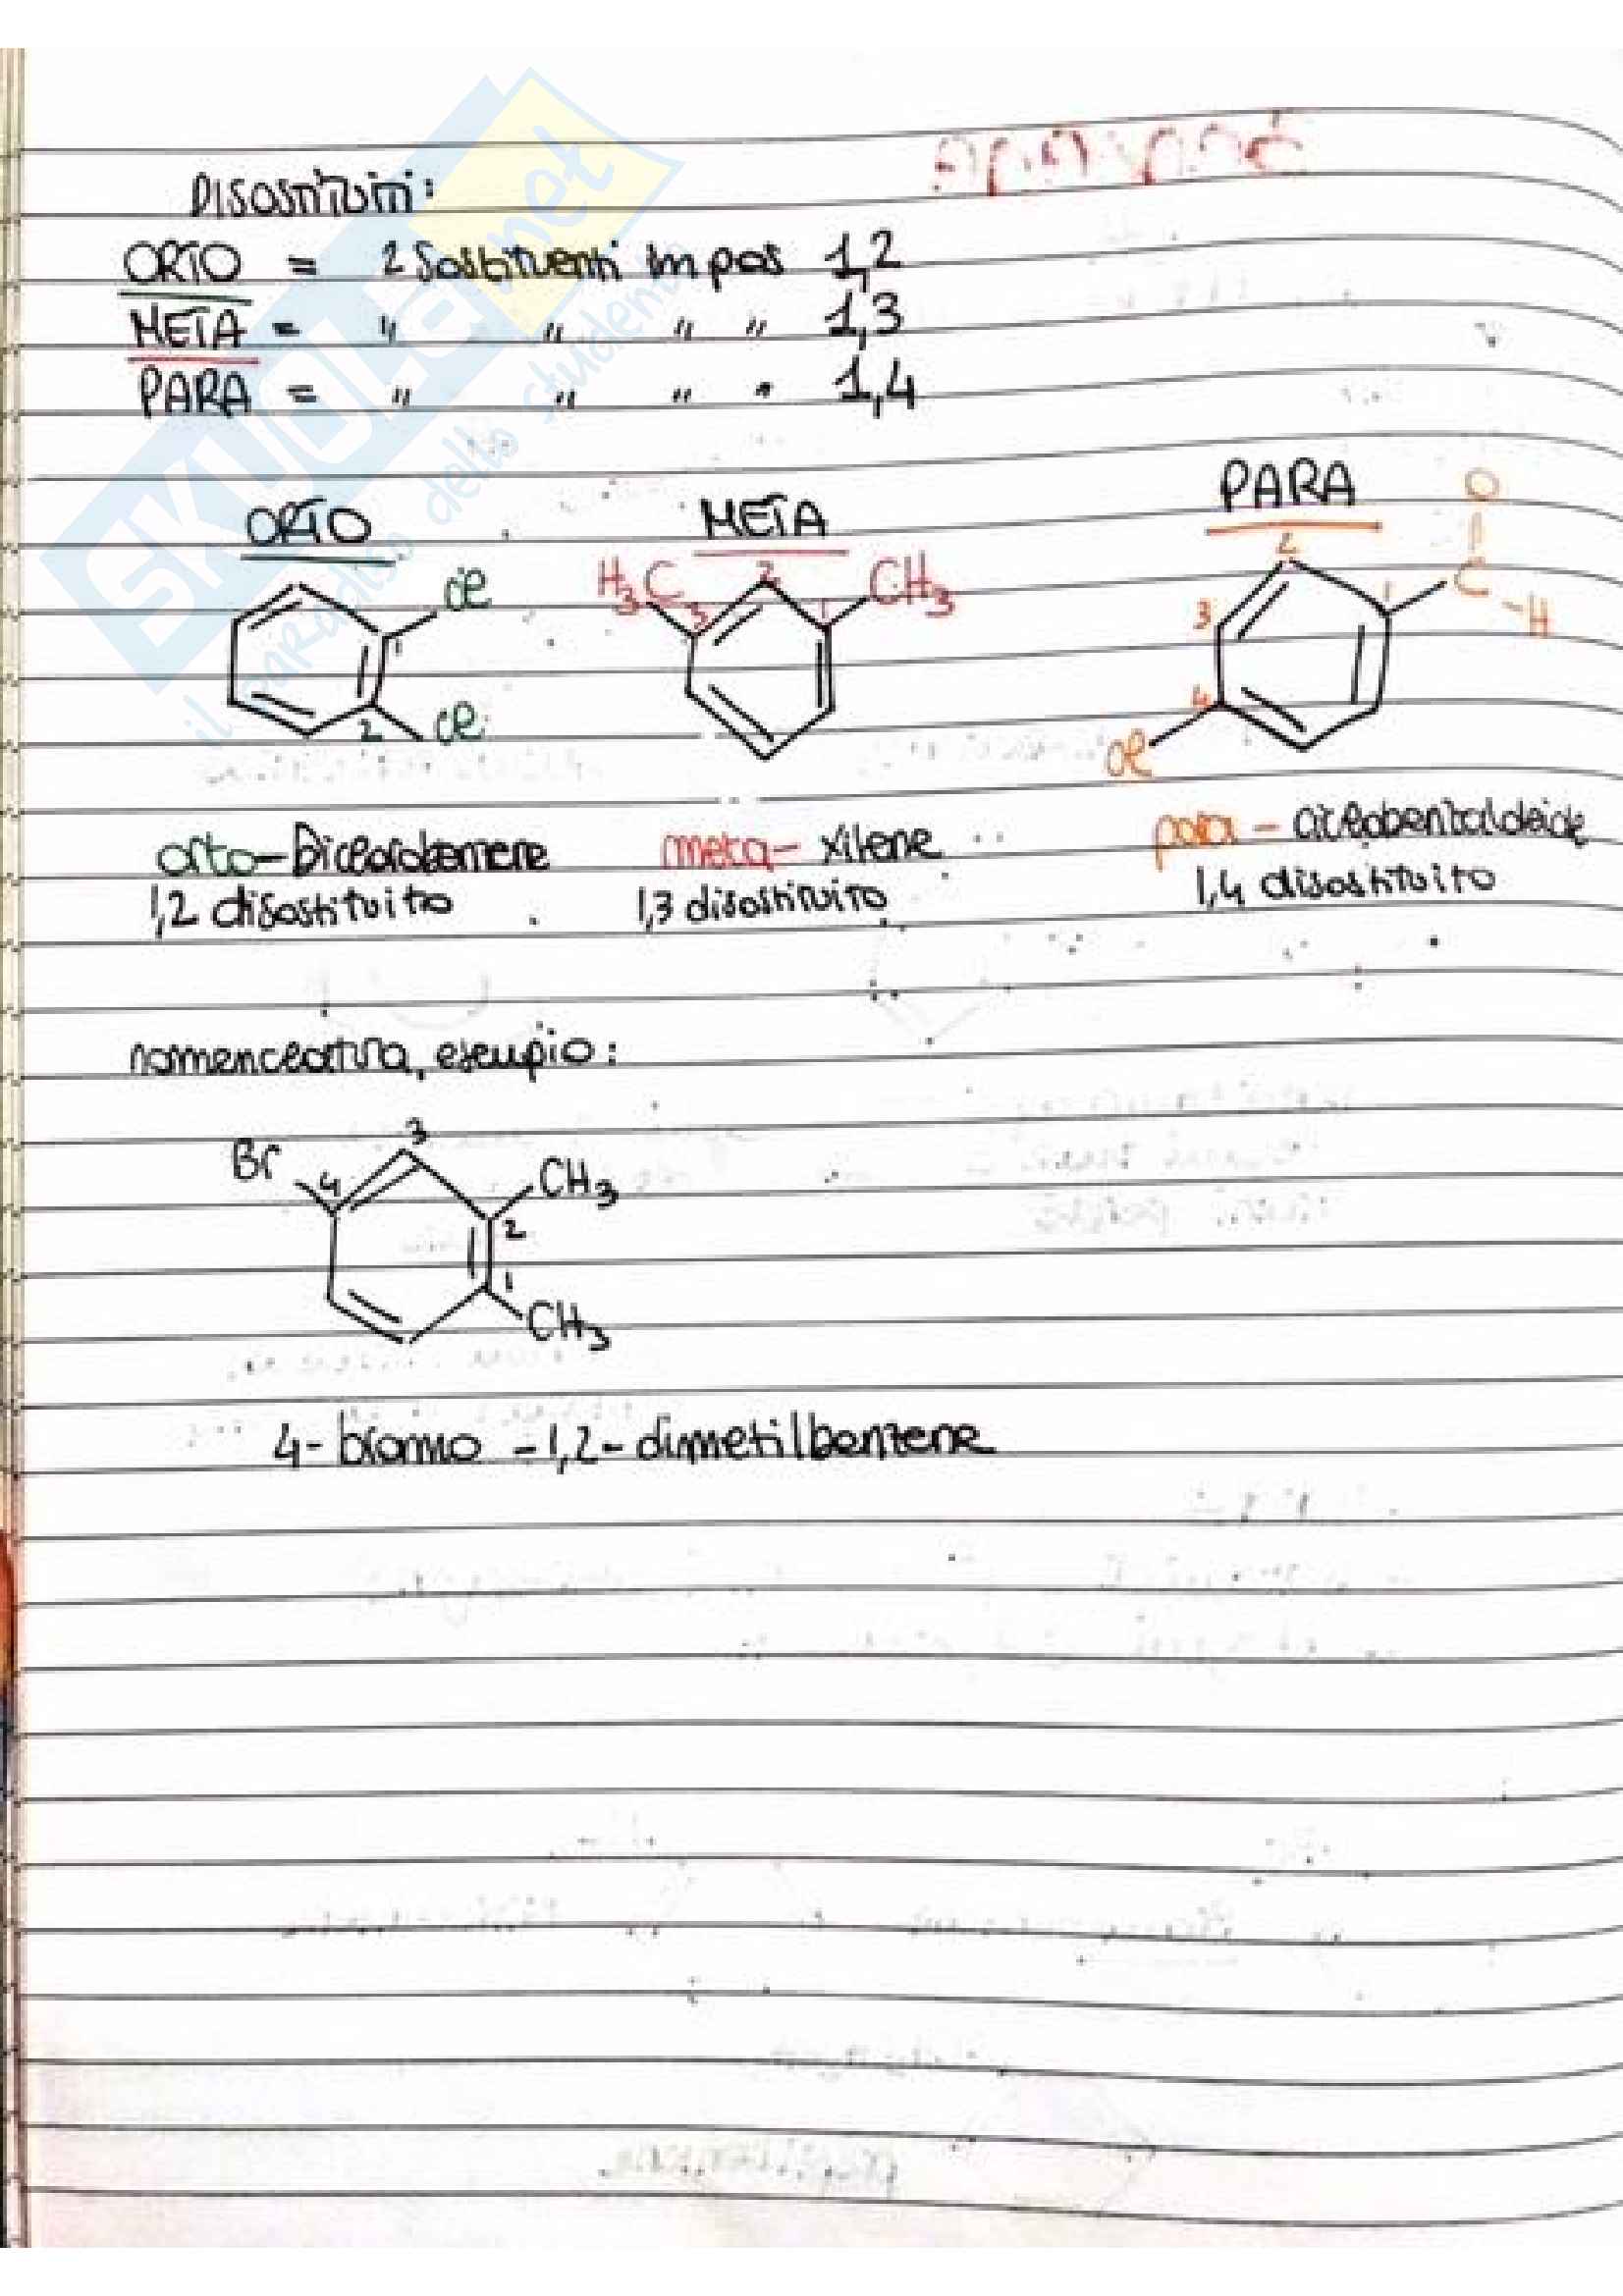 DISOSTITUITI:
ORTO = 2 Sostituenti in pos 1,2
META = " " " " 1,3
PARA = " " " " 1,4
SKUOLA.net
il paradiso dello studente
ORTO META PARA
Cl
1
2
Cl
H3C 3 2 1 CH3
O
C
H
1
2
3
4
Cl
orto-Diclorobenzene meta-xilene para-clorobenzaldeide
1,2 disostituito 1,3 disostituito 1,4 disostituito
nomenclatura, esempio:
Br 4 3 CH3
2
1
CH3
4-bromo -1,2-dimetilbenzene